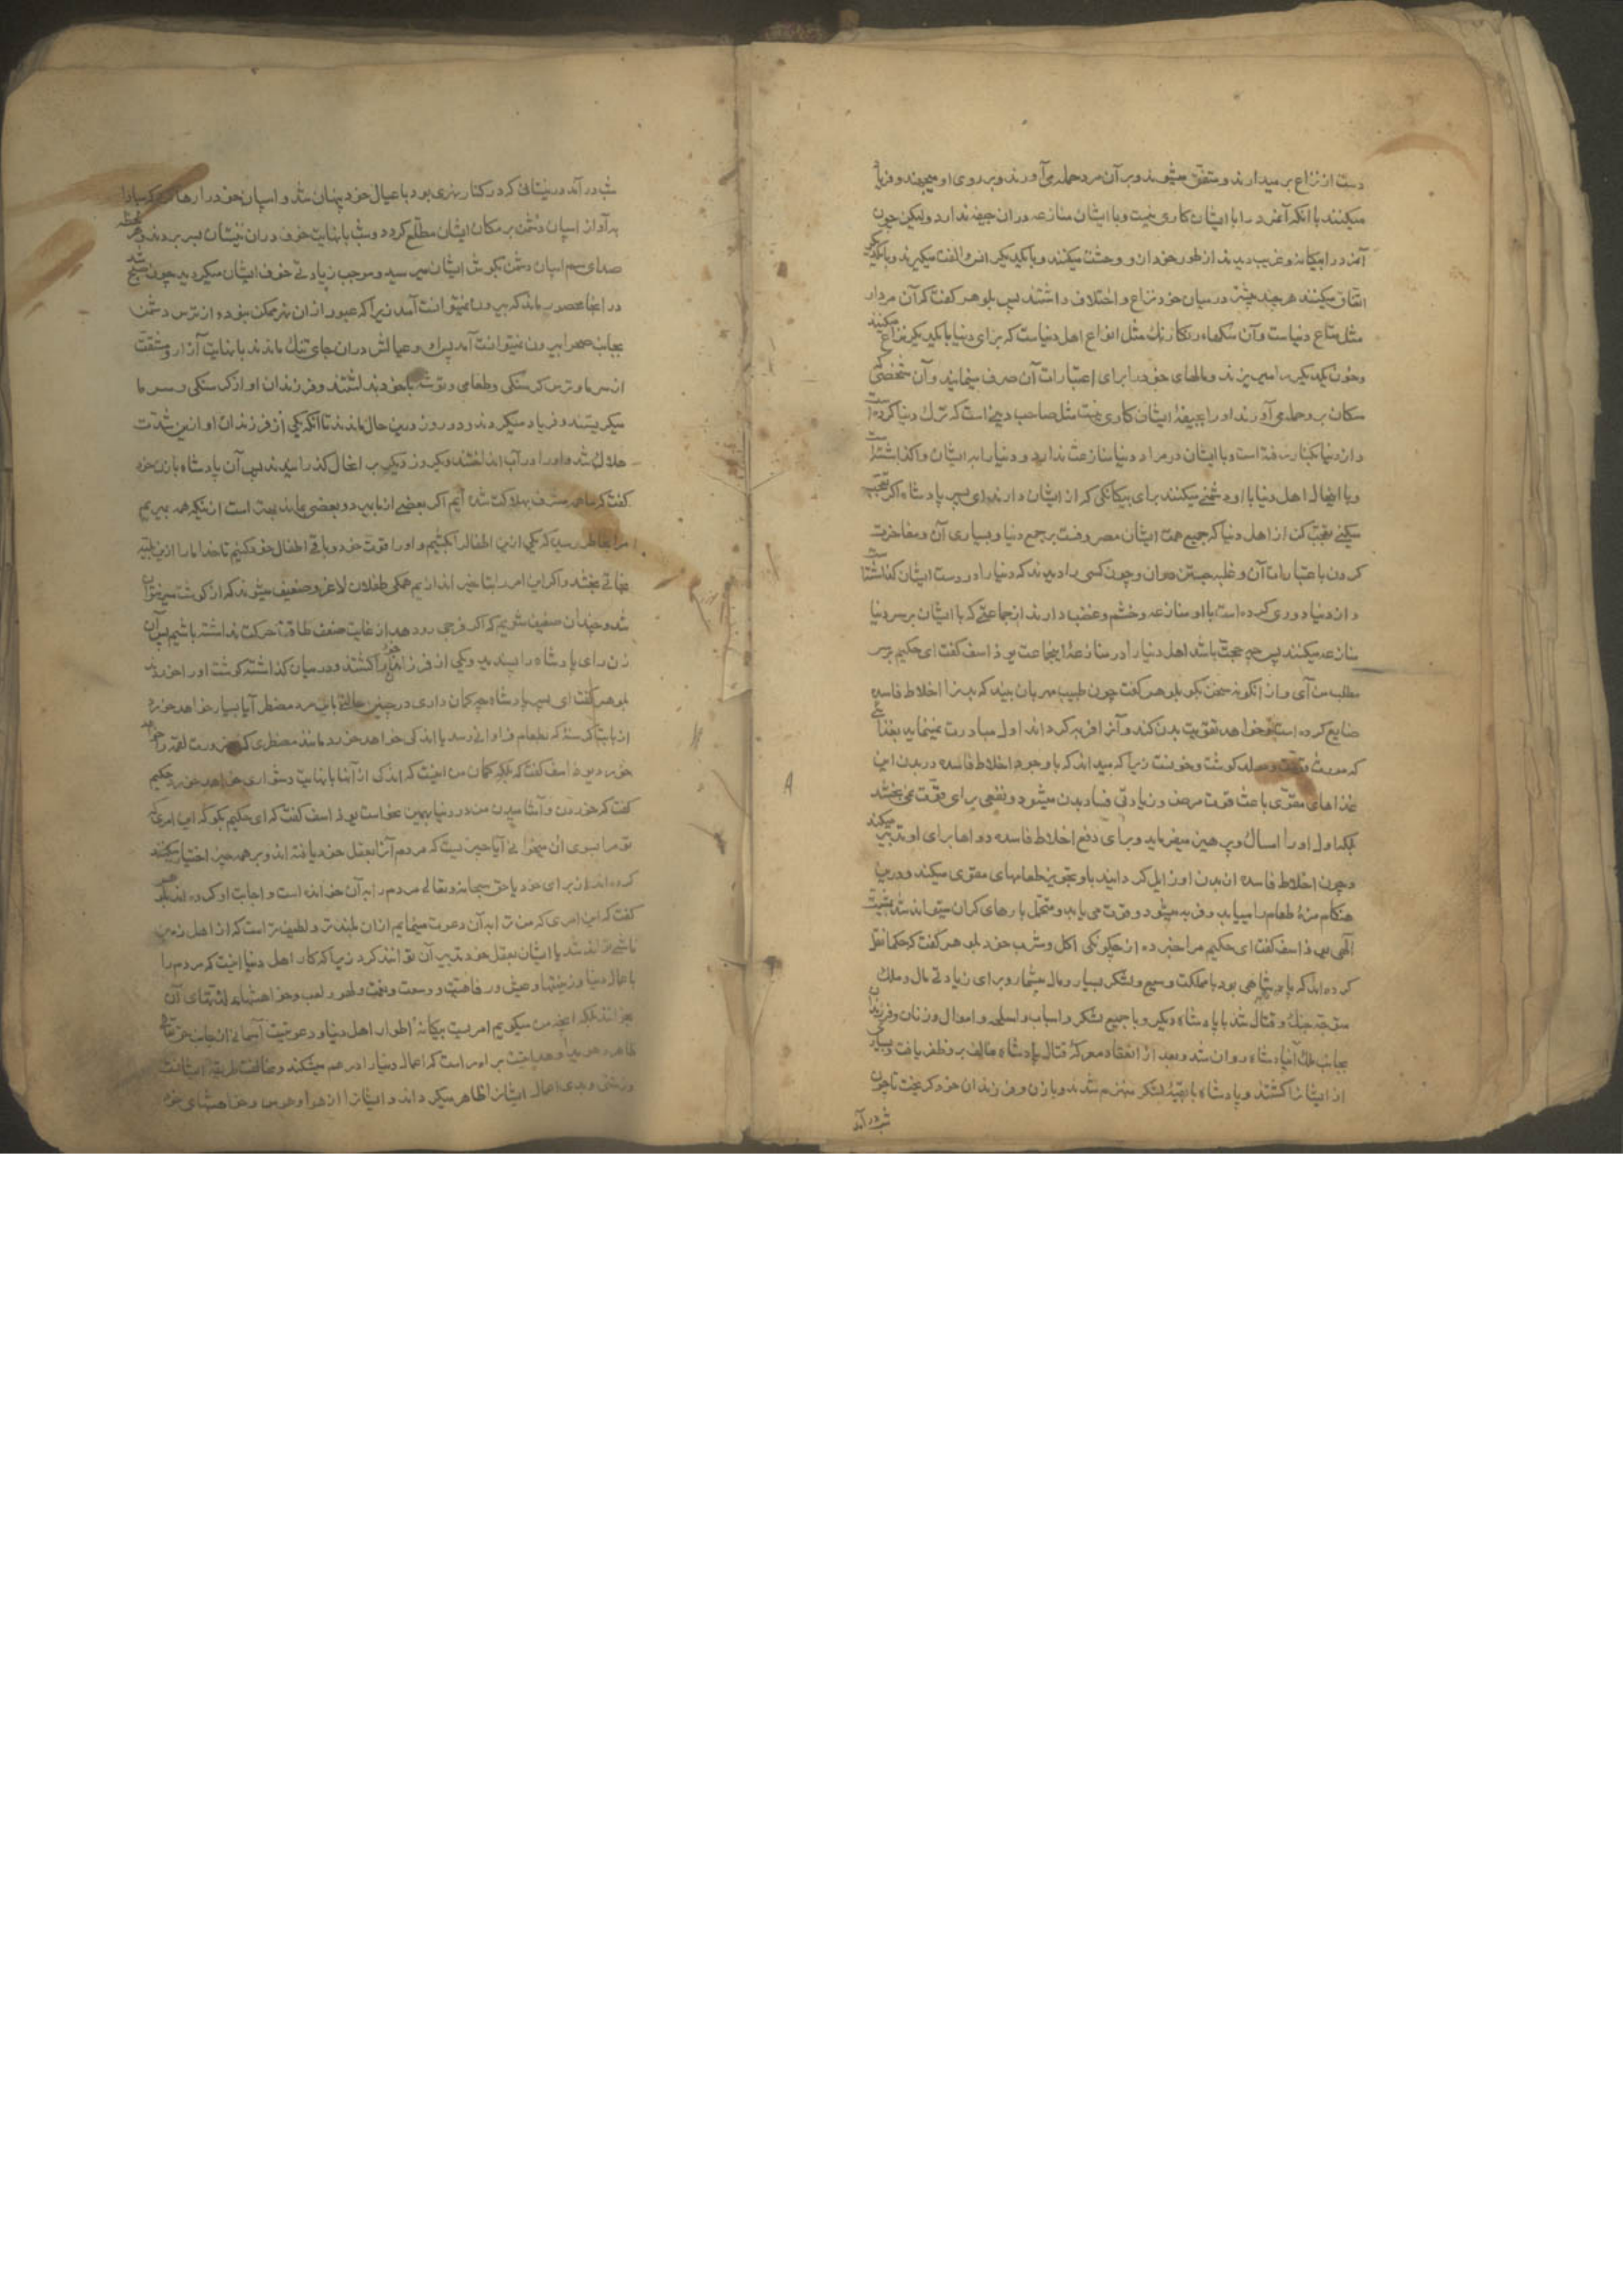 دست از نزاع برمیدارند و متفق میشوند و بر آن مرد حمله می‌آورند و بر روی او میجهند و فریاد
میکنند با آنکه آنمرد را با ایشان کاری نیست و با ایشان منازعه در آن جیفه ندارد ولیکن چون
آنمرد را بیکانه و غریب دیدند از طور خودشان و وحشت میکنند و با یکدیکر انس و الفت میکیرند و با یکدیکر
اتفاق میکنند هر چند پیشتر در میان خود نزاع و اختلاف داشتند پس بلوهر کفت که آن مردار
مثل متاع دنیاست و آن سکهای رنکارنک مثل انواع اهل دنیاست که برای دنیا با یکدیکر نزاع میکنند
و خون یکدیکر را میریزند و مالهای خود را برای اعتبارات آن صرف مینمایند و آن شخصی که
سکان برو حمله می‌آورند و او را بجیفهٔ ایشان کاری نیست مثل صاحب دینی است که ترک دنیا کرده است
و از دنیا بکنار رفته است و با ایشان در مراد دنیا منازعت ندارد و دنیا را به ایشان واکذاشته است
و با اینحال اهل دنیا با او دشمنی میکنند برای بیکانکی که از ایشان دارند ای پسر پادشاه اکر تعجب
میکنی تعجب کن از اهل دنیا که جمیع همت ایشان مصروفست بر جمع دنیا و بسیاری آن و مفاخرت
کردن با عتبارات آن و غلبه جستن در آن و چون کسی را دیدند که دنیا را در دست ایشان کذاشته است
و از دنیا دوری کرده است با او منازعه و خشم و غضب دارند از جماعتی که با ایشان بر سر دنیا
منازعه میکنند پس چه حجت باشد اهل دنیا را در منازعهٔ اینجماعت یوذاسف کفت ای حکیم بر سر
مطلب من آی و از انکونه سخن بکو بلوهر کفت چون طبیب مهربان بیند که بدن را اخلاط فاسده
ضایع کرده است و خواهد تقویت بدن کند و آنرا فربه کرداند اول مبادرت نمینماید بغذائی
که مورث قوت و مولد کوشت و خونست زیرا که میداند که با وجود اخلاط فاسده در بدن این
غذاهای مقوی باعث قوت مرض و زیادتی فساد بدن میشود و نفعی برای قوت نمی‌بخشد
بلکه اول او را امساک و پرهیز میفرماید و برای دفع اخلاط فاسده دواها برای او تدبیر میکند
و چون اخلاط فاسده از بدن او زایل کردانید باو تجویز طعامهای مقوی میکند و در این
هنکام مزهٔ طعام را مییابد و فربه میشود و قوت می‌یابد و متحمل بارهای کران میتواند شد بمشیت
الهی یوذاسف کفت ای حکیم مرا خبر ده از چکونکی اکل و شرب خود بلوهر کفت که حکما نقل
کرده‌اند که پادشاهی بود با مملکت وسیع و لشکر بسیار و مال بیشمار و برای زیادتی مال و ملک
متوجه جنک و قتال شد با پادشاه دیکر و با جمیع لشکر و اسباب و اسلحه و اموال و زنان و فرزندان
بجانب ملک آنپادشاه روان شد و بعد از انعقاد معرکه قتال پادشاه مخالف برو ظفر یافت و بسیاری
از ایشانرا کشتند و پادشاه با بقیهٔ لشکر منهزم شدند و با زن و فرزندان خود کریخت تا چون
شب در آمد
شب در آمد در نیستانی که در کنار نهری بود با عیال خود پنهان شد و اسپان خود را رها کرد که مبادا
به آواز اسپان دشمن بر مکان ایشان مطلع کردد و شب با نهایت خوف در ان نیستان بسر بردند و هر لحظه
صدای سم اسپان دشمن بکوش ایشان میرسید و موجب زیادتی خوف ایشان میکردید چون صبح شد
در انجا محصور ماند که بیرون نمیتوانست آمد زیرا که عبور از ان نهر ممکن نبود و از ترس دشمن
بجانب صحرا بیرون نمیتوانست آمد پس او و عیالش در ان جای تنک ماندند با نهایت آزار و مشقت
از سرما و ترس کرسنکی و طعامی و توشه با خود نداشتند و فرزندان او از کرسنکی و سرما
میکریستند و فریاد میکردند و دو روز درین حال ماندند تا آنکه یکی از فرزندان او ازین شدت
هلاک شد و او را در آب انداختند و یکروز دیکر بر اینحال کذرانیدند پس آن پادشاه با زن خود
کفت که ما همه مشرف بهلاکت شده ایم اکر بعضی از ما بمیرد و بعضی بماند بهتر است از نیکه همه بمیریم
مرا بخاطر رسید که یکی ازین اطفال را بکشیم و او را قوت خود و باقی اطفال خود کنیم تا خدا ما را ازین بلیه
نجاتی بخشد و اکر این امر را بتاخیر اندازیم همکی طفلان لاغر و ضعیف میشوند که از کوشت سیر نتوان
شد و چندان ضعیف شویم که اکر فرجی رو دهد از غایت ضعف طاقت حرکت نداشته باشیم پس آن
زن رای پادشاه را پسندید و یکی از فرزندان خود را کشتند و در میان کذاشته کوشت او را خوردند
بلوهر کفت ای پسر پادشاه چه کمان داری در چنین حالتی باین مرد مضطر آیا بسیار خواهد خورد
از بابت کرسنهٔ که بطعام فراوانی رسد یا اندکی خواهد خورد مانند مضطری که بضرورت لقمه را خواهد
خورد یوذاسف کفت که بلکه کمان من اینست که اندک از آنرا با نهایت دشواری خواهد خورد حکیم
کفت که خوردن و آشامیدن من در دنیا بهمین نحو است یوذاسف کفت که ای حکیم بکو که این امری که
تو مرا بسوی آن میخوانی آیا چیزیست که مردم آنرا بعقل خود یافته اند و بر همه چیز اختیار
کرده‌اند از برای خود یا حق سبحانه و تعالی مردم را به آن خوانده است و اجابت او کرده‌اند حکیم
کفت که این امری که من ترا به آن دعوت مینمایم از ان بلندتر و لطیف‌تر است که از اهل زمین
ناشی تواند شد یا ایشان بعقل خود تدبیر آن توانند کرد زیرا که کار اهل دنیا اینست که مردم را
باعمال دنیا و زینتها و عیش و رفاهیت و وسعت و نعمت و لهو و لعب و خواهشها و لذتهای آن
بخوانند بلکه انچه من میکویم امریست بیکانه اطوار اهل دنیا و دعوتیست آسمانی از جانب حق تعالی
ظاهر و هویدا و هدایتیست بر راه راست که اعمال دنیا را در هم میشکند و مخالفت طریقه ایشانست
و زشتی و بدی اعمال ایشان را ظاهر میکرداند و ایشانرا از هوا و هوس و خواهشهای خود